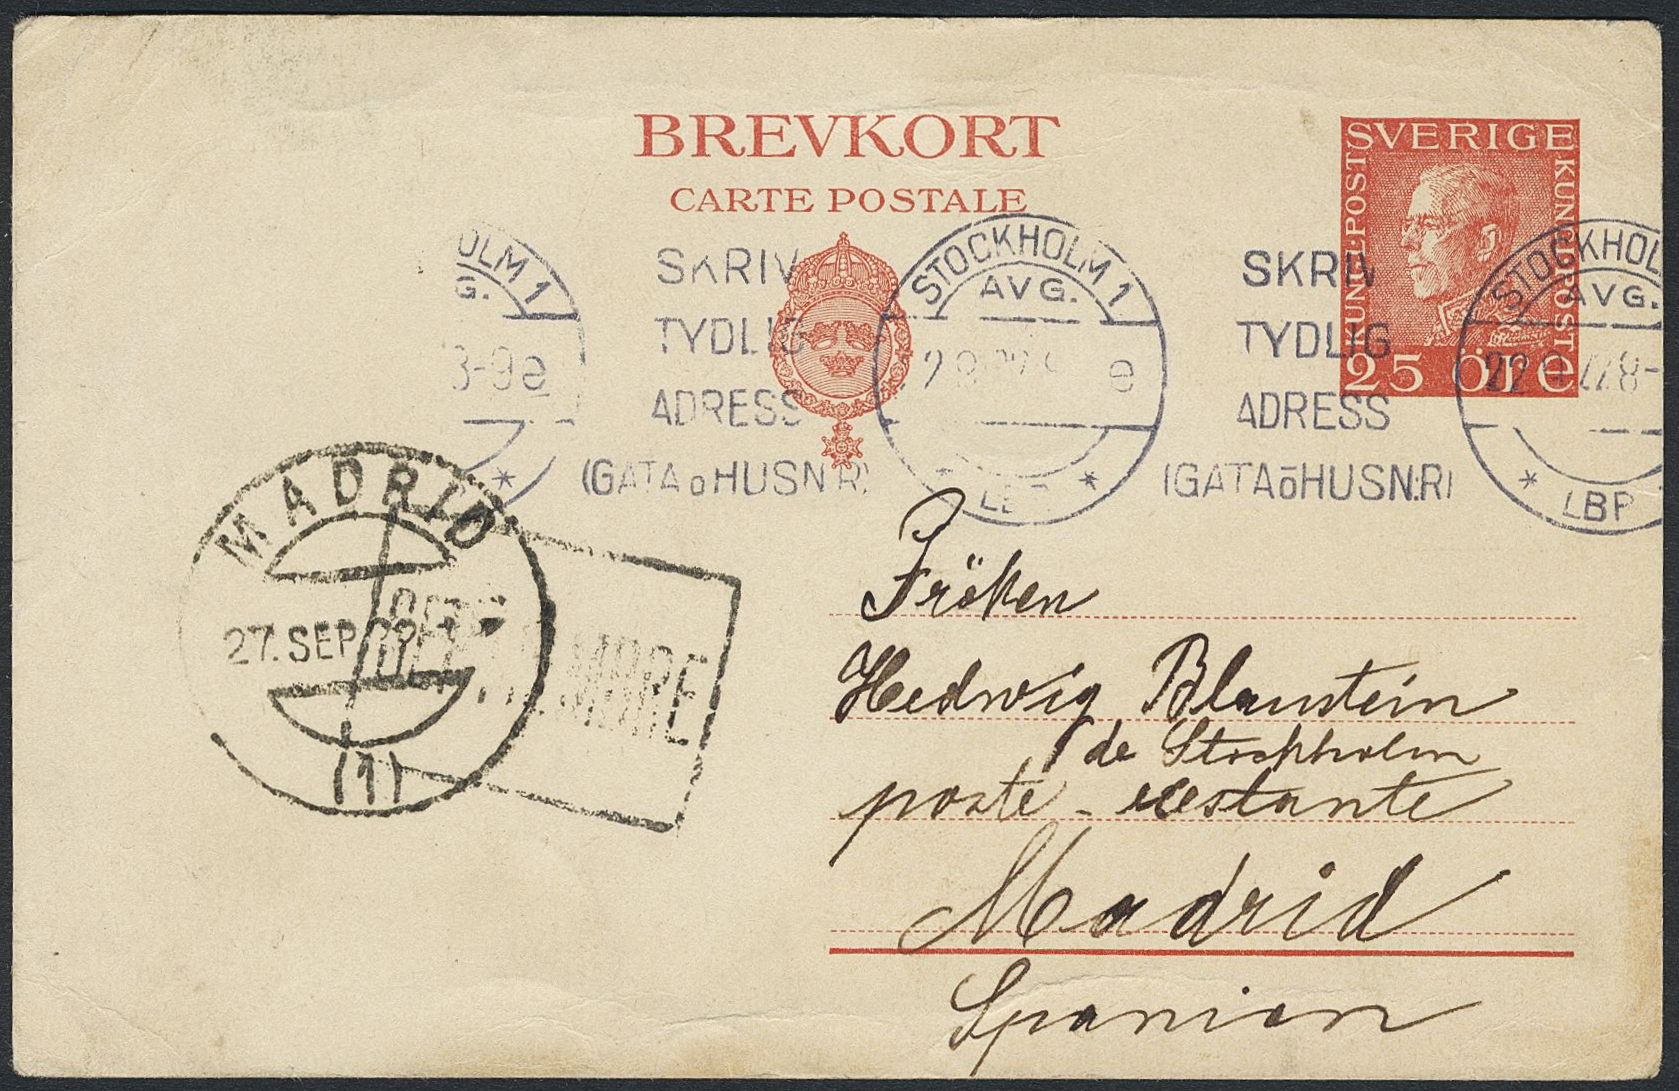 BREVKORT
CARTE POSTALE
SVERIGE
KUNGL POST
KUNGL POST
25 ÖRE
OLM 1
G.
3-9 e
SKRIV
TYDLIG
ADRESS
(GATA o HUSN:R)
STOCKHOLM 1
AVG.
e
SKRIV
TYDLIG
ADRESS
(GATA o HUSN:R)
STOCKHOL
AVG.
LBR
MADRID
27. SEP
(1)
Fröken
Hedwig Blaustein
de Stockholm
poste-restante
Madrid
Spanien